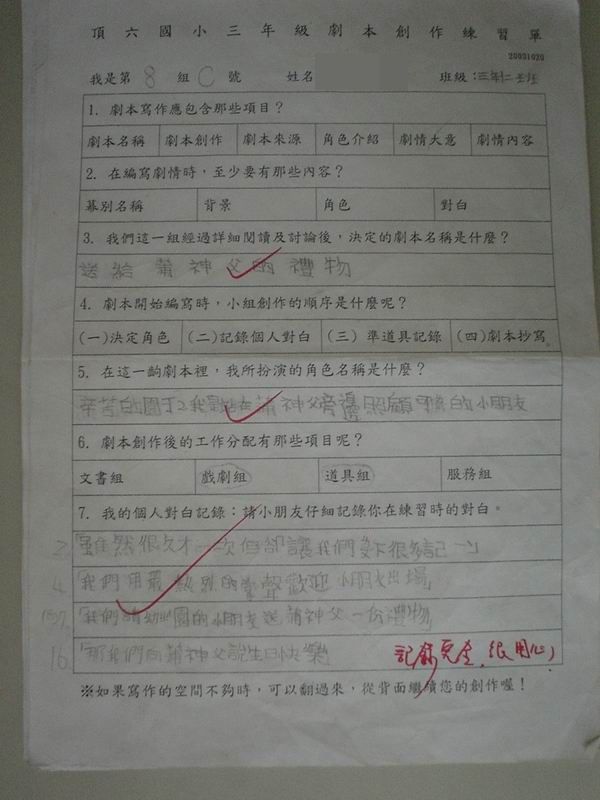 頂六國小三年級劇本創作練習單
20091020
我是第 8 組 C 號 姓名 班級：三年仁班
1. 劇本寫作應包含那些項目？
劇本名稱 劇本創作 劇本來源 角色介紹 劇情大意 劇情內容
2. 在編寫劇情時，至少要有那些內容？
幕別名稱 背景 角色 對白
3. 我們這一組經過詳細閱讀及討論後，決定的劇本名稱是什麼？
送給蒲神父的禮物
4. 劇本開始編寫時，小組創作的順序是什麼呢？
(一)決定角色 (二)記錄個人對白 (三) 準道具記錄 (四)劇本抄寫
5. 在這一齣劇本裡，我所扮演的角色名稱是什麼？
辛苦的園丁2我是站在蒲神父旁邊照顧可憐的小朋友
6. 劇本創作後的工作分配有那些項目呢？
文書組 戲劇組 道具組 服務組
7. 我的個人對白記錄：請小朋友仔細記錄你在練習時的對白。
2.「雖然很久才一次但卻讓我們
4.「我們用最熱烈的掌聲歡迎小朋友出場」
「我們請幼稚園的小朋友送蒲神父一份禮物」
16.「那我們向蒲神父說生日快樂
記錄完整，很用心
※如果寫作的空間不夠時，可以翻過來，從背面繼續您的創作喔！